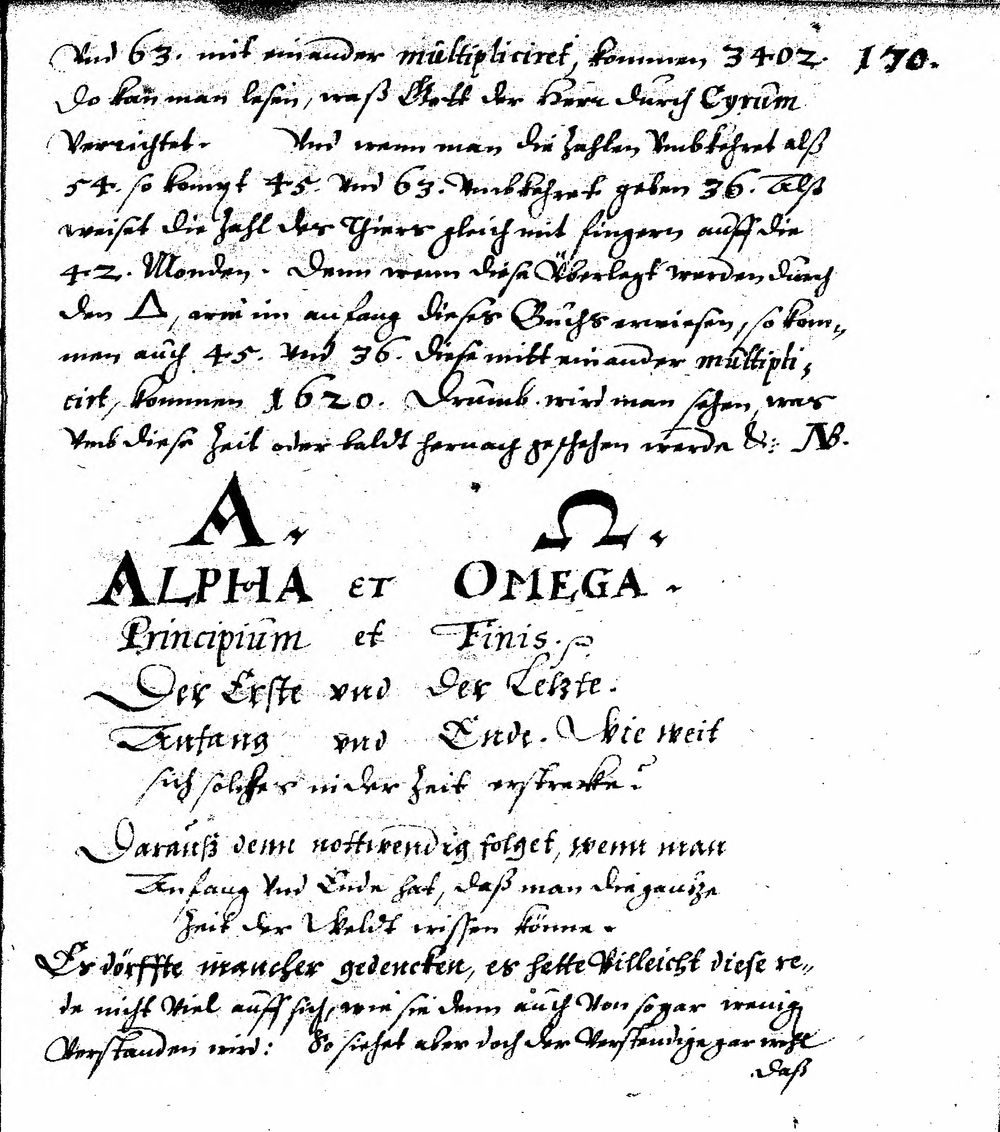 Vnd 63. mit einander multipliciret, kommen 3402. 170.
Do kan man lesen, waß Gott der Herr durch Cyrum
Verrichtet. Vnd wenn man die Zahlen Vmbkehret alß
54. so kompt 45. Vnd 63. Vmbkehret geben 36. Alß
weiset die Zahl des Thiers gleich mit fingern auff die
42. Monden. Denn wenn diese Überlegt werden durch
den Δ, wie im anfang dieses Buchs erwiesen, so kom„
men auch 45. Vnd 36. diese mitt einander multipli,
cirt, kommen 1620. Drumb wird man sehen, was
Vmb diese Zeit oder baldt hernach geschehen werde &: NB.
A. Ω.
ALPHA ET OMEGA.
Principium et Finis.
Der Erste vnd der Letzte.
Anfang vnd Ende. Wie weit
sich solches in der Zeit erstrecke?
Darauß denn nottwendig folget, wenn man
Anfang Vnd Ende hat, daß man die gantze
Zeit der Weldt wissen könne.
Es dörffte mancher gedencken, es hette Villeicht diese re„
de nicht Viel auff sich, wie sie denn auch Von so gar wenig
Verstanden wird: So siehet aber doch der Verstendige gar wohl
daß